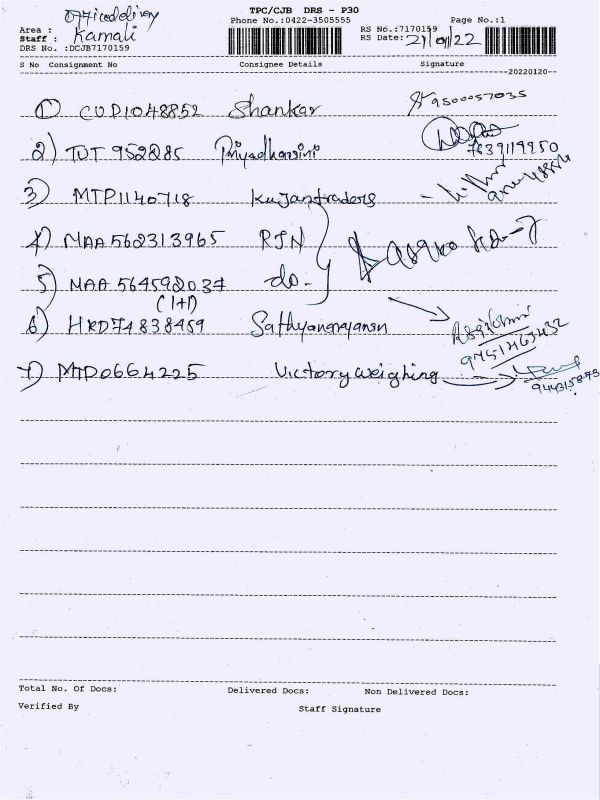 officedelivery
TPC/CJB DRS - P30
Phone No.:0422-3505555
Page No.:1
Area :
Staff : Kamali
DRS No. :DCJB7170159
RS No.:7170159
RS Date: 21/01/22
S No Consignment No Consignee Details Signature
20220120
1) CUD1048852 Shankar 9500057035
2) TUT 952285 Priyadharsini 7639119950
3) MTP1140718 Kujantraders
4) MAA 562313965 RJN
5) MAA 564592037 do-
(1+1)
6) HRD74838459 Sathyanarayanan
9751463432
7) MTD0664225 Victoryweighing
Total No. Of Docs: Delivered Docs: Non Delivered Docs:
Verified By Staff Signature